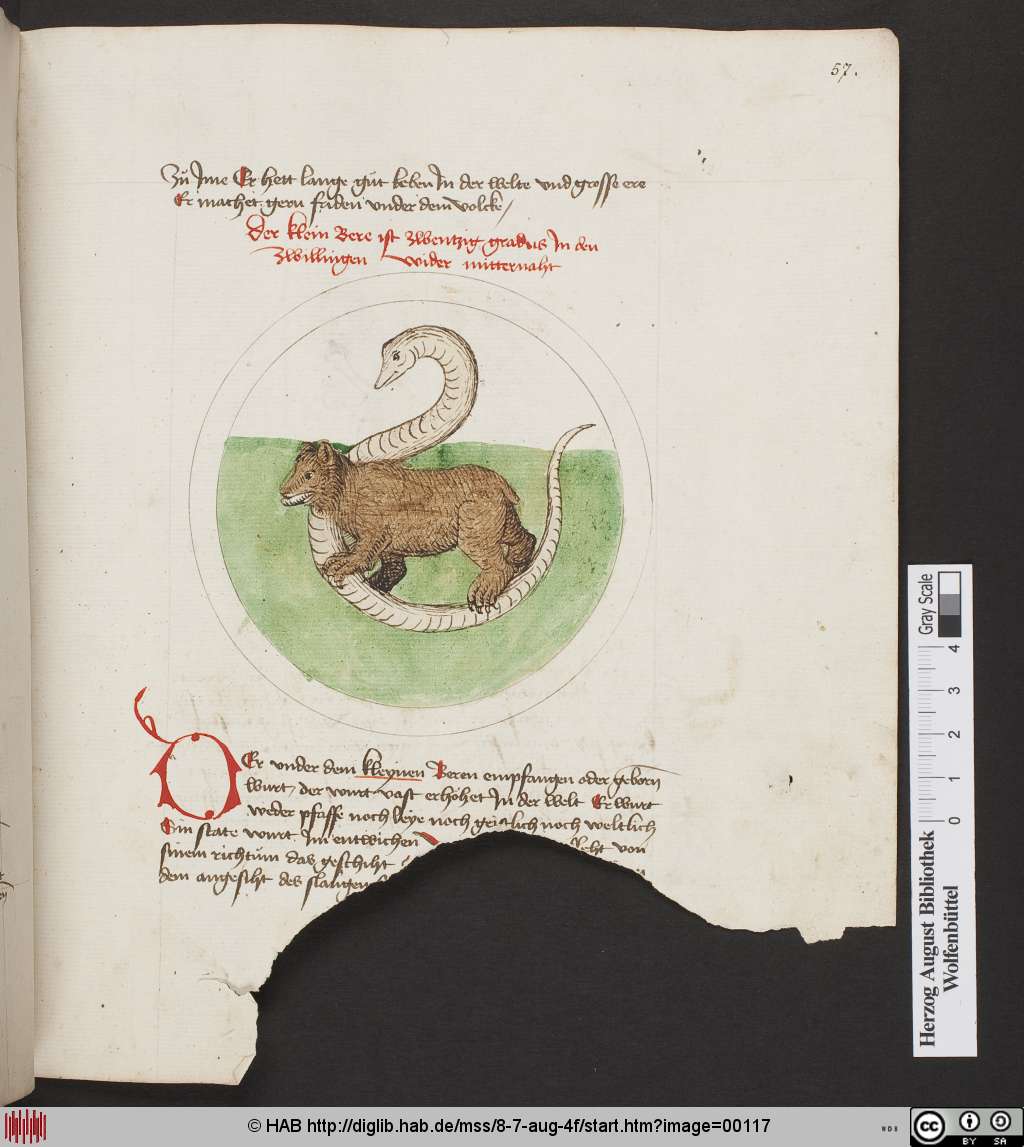 57.
Zu Ime Er hett lange gut leben In der welte und grosse ere
Er machet gern friden under dem volcke /
Der klein Bere ist zwentzig gradus In den
zwillingen wider mitternaht
DEr under dem kleynen Beren empfangen oder geborn
wurt, der wurt vast erhöhet In der welt Er wurt
weder pfaffe noch leye noch geistlich noch weltlich
Ein state wurt Im entwichen
sinem richtům das geschiht von
dem angesiht des slangen
Gray Scale
0 1 2 3 4
Herzog August Bibliothek
Wolfenbüttel
© HAB http://diglib.hab.de/mss/8-7-aug-4f/start.htm?image=00117
WDB
cc BY SA